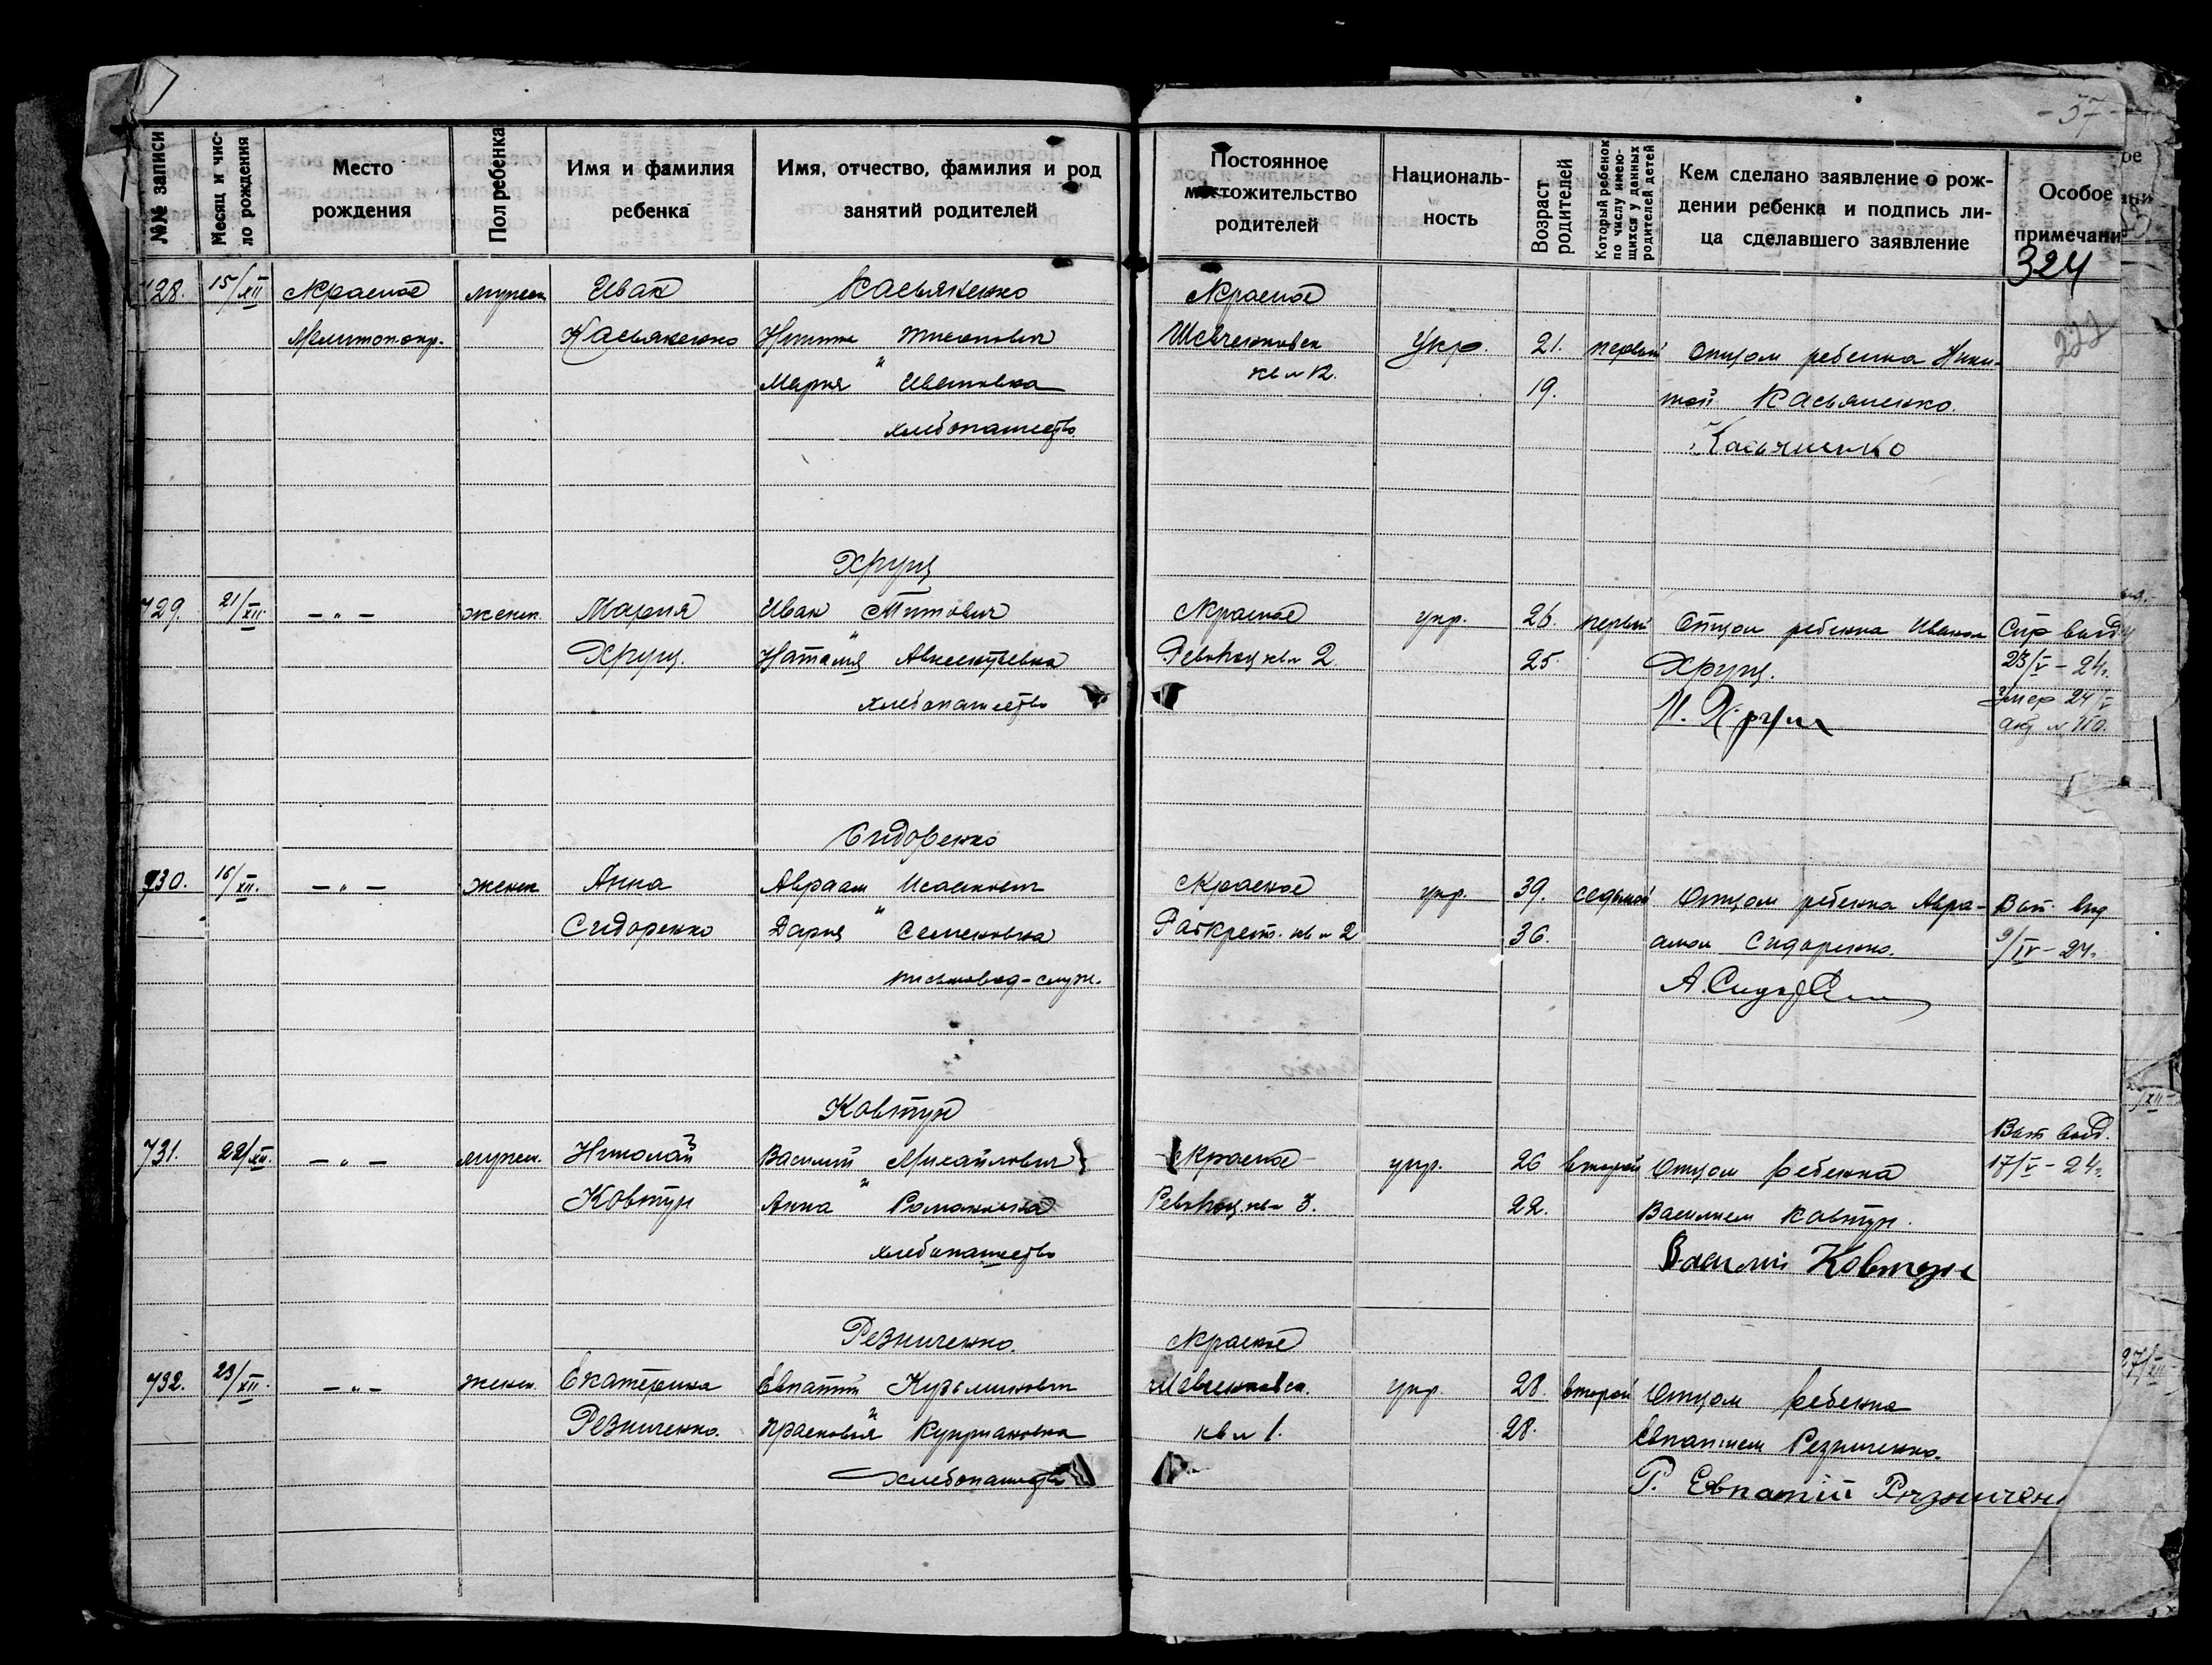 - 37 -
№№ записи
Месяц и чис-
ло рождения
Место
рождения
Пол ребенка
Имя и фамилия
ребенка
Имя, отчество, фамилия и род
занятий родителей
Постоянное
местожительство
родителей
Националь-
ность
Возраст
родителей
Который ребенок
по числу имею-
щихся у данных
родителей детей
Кем сделано заявление о рож-
дении ребенка и подпись ли-
ца сделавшего заявление
Особое
примечани
324
222
Касьяненко
728. 15/XII Красное мужск Иван Красное
Мелитопокр. Касьяненко Никита Шевченковск Укр. 21. первый Отцом ребенка Ники-
Мария " Ивановна кв № 12. 19. той Касьяненко.
хлебопашество
Касьяненко
Хрущ
729. 21/XII. — " — женск. Мария Иван Титович Красное укр. 26. первый Отцом ребенка Иваном Спр выд
Хрущ. Наталия " Авксентьевна кв № 2 25. Хрущ. 23/V - 24г.
хлебопашество И. Хрущ Умер 24/V
акт №
Сидоренко
730. 16/XII. — " — женск Анна Авраам Исаакович Красное укр. 39. седьмой Отцом ребенка Авра- Вып выд
Сидоренко Дария " Семеновна Раскреп. кв № 2 36. амом Сидоренко. 9/IV - 24г.
письмовод-служ. А. Сидоренко
Ковтун
731. 22/XII. — " — мужск. Николай Василий Михайлович Красное укр. 26 второй Отцом ребенка Вып выд. 17/V - 24г.
Ковтун Анна " Романовна кв № 3. 22. Василием Ковтун.
хлебопашество Василий Ковтун
Резниченко. Красное
732. 23/XII. — " — женск. Екатерина Евпатий Кузьминович Шевченковск. укр. 28. второй Отцом ребенка
Резниченко. Прасковья " Куприановна кв № 1. 28. Евпатием Резниченко.
хлебопашество Р. Евпатій Рѣзничен
27/XII